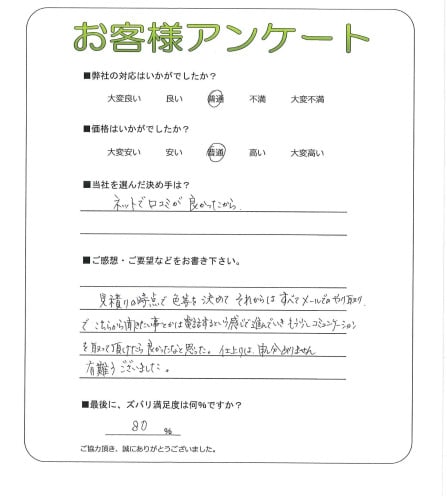 お客様アンケート
■弊社の対応はいかがでしたか？
大変良い 良い 普通 不満 大変不満
■価格はいかがでしたか？
大変安い 安い 普通 高い 大変高い
■当社を選んだ決め手は？
ネットで口コミが良かったから
■ご感想・ご要望などをお書き下さい。
見積りの時点で色等も決めて それからは すべてメールでのやり取り
で こちらから聞きたい事とかは電話するという感じで進んでいき もう少しコミュニケーション
を取って頂けたら良かったなと思った。仕上りは、申し分ありません
有難うございました。
■最後に、ズバリ満足度は何%ですか？
80 %
ご協力頂き、誠にありがとうございました。